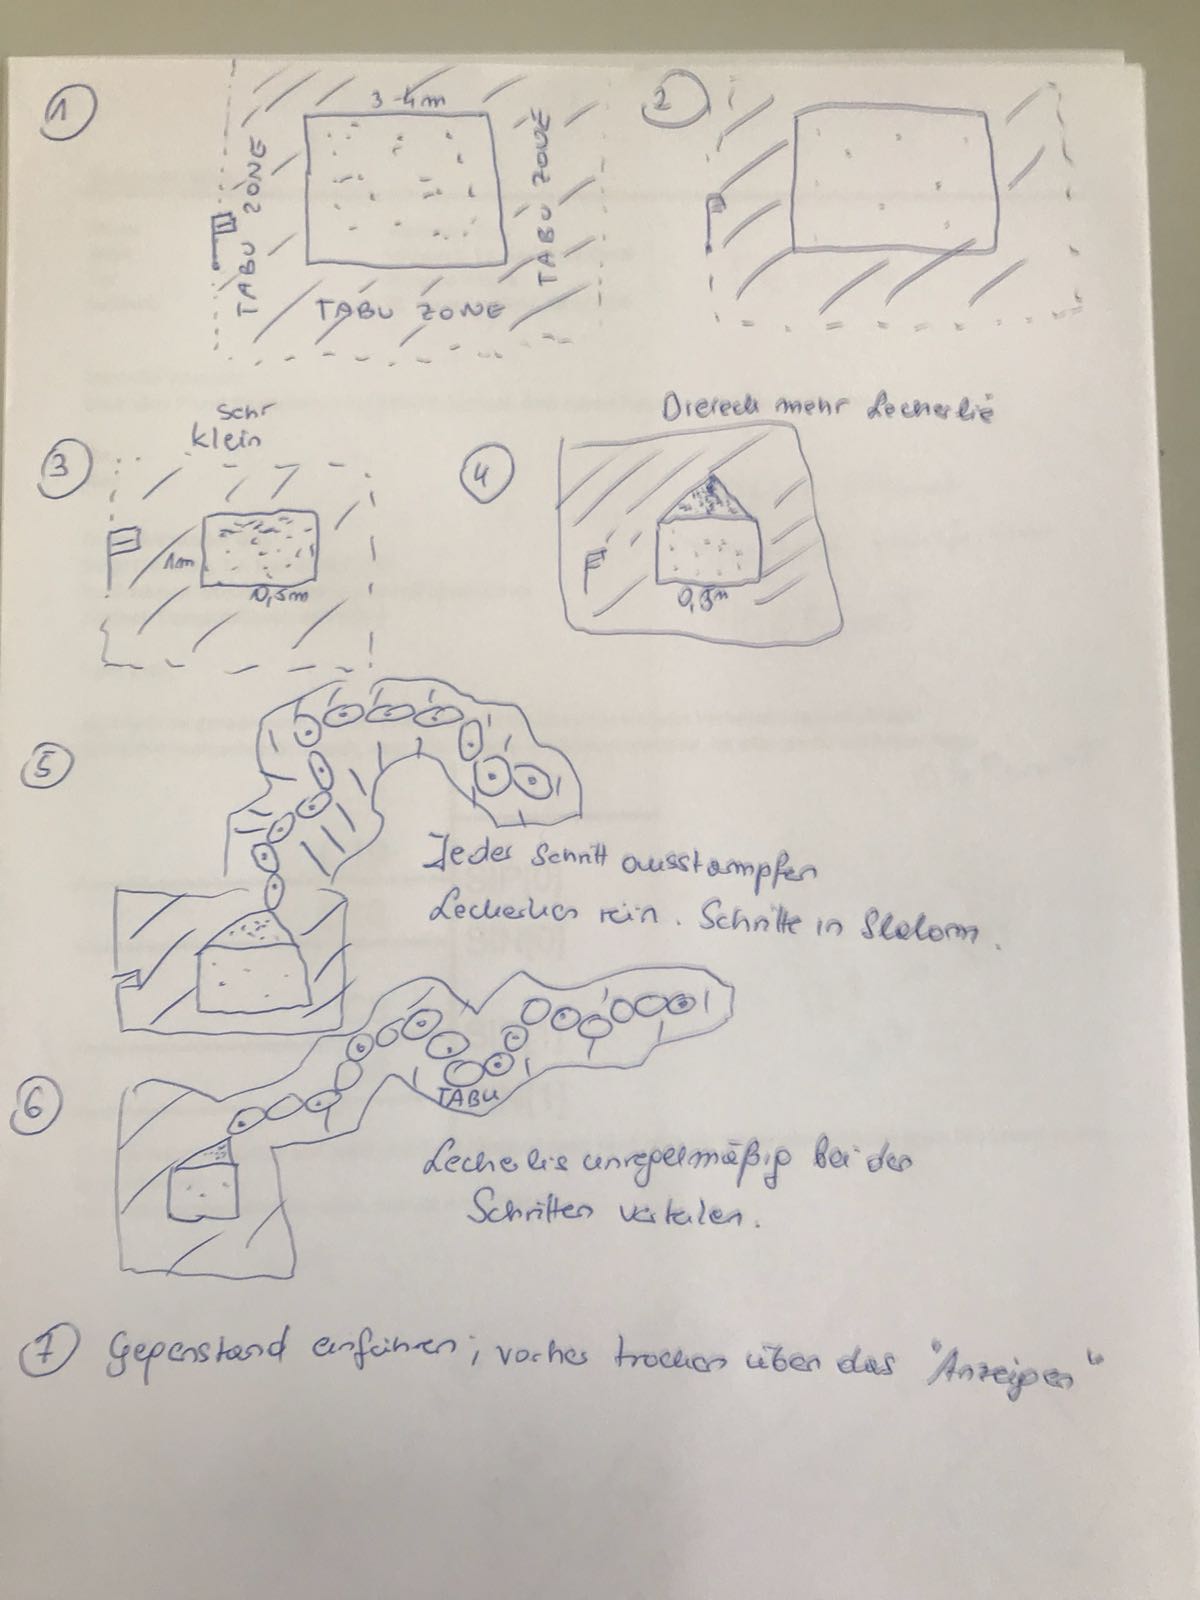 1
3-4m
TABU ZONE
TABU ZONE
TABU ZONE
2
3
Sehr
klein
1m
0,5m
4
Dreieck mehr Leckerlie
0,5m
5
Jeder Schritt ausstampfen
Leckerlies rein. Schritte in Slalom.
6
TABU
Leckerlis unregelmäßig bei den
Schritten verteilen.
7 Gegenstand einführen; vorher trocken über das "Anzeigen"